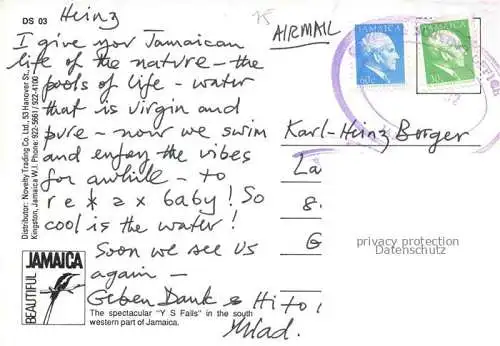 DS 03
Heinz
I give you Jamaican
life of the nature – the
pools of life – water
that is virgin and
pure – now we swim
and enjoy the vibes
for awhile – to
relax baby! So
cool is the water!
Soon we see us
again –
Geben Dank & Hi to
Mlad.
AIRMAIL
JAMAICA
60c
JAMAICA
Karl-Heinz Borger
La
8
G
privacy protection
Datenschutz
Distributor: Novelty Trading Co. Ltd., 53 Hanover St.,
Kingston, Jamaica W.I. Phone: 922-5661 / 922-4100
BEAUTIFUL
JAMAICA
The spectacular "Y S Falls" in the south
western part of Jamaica.